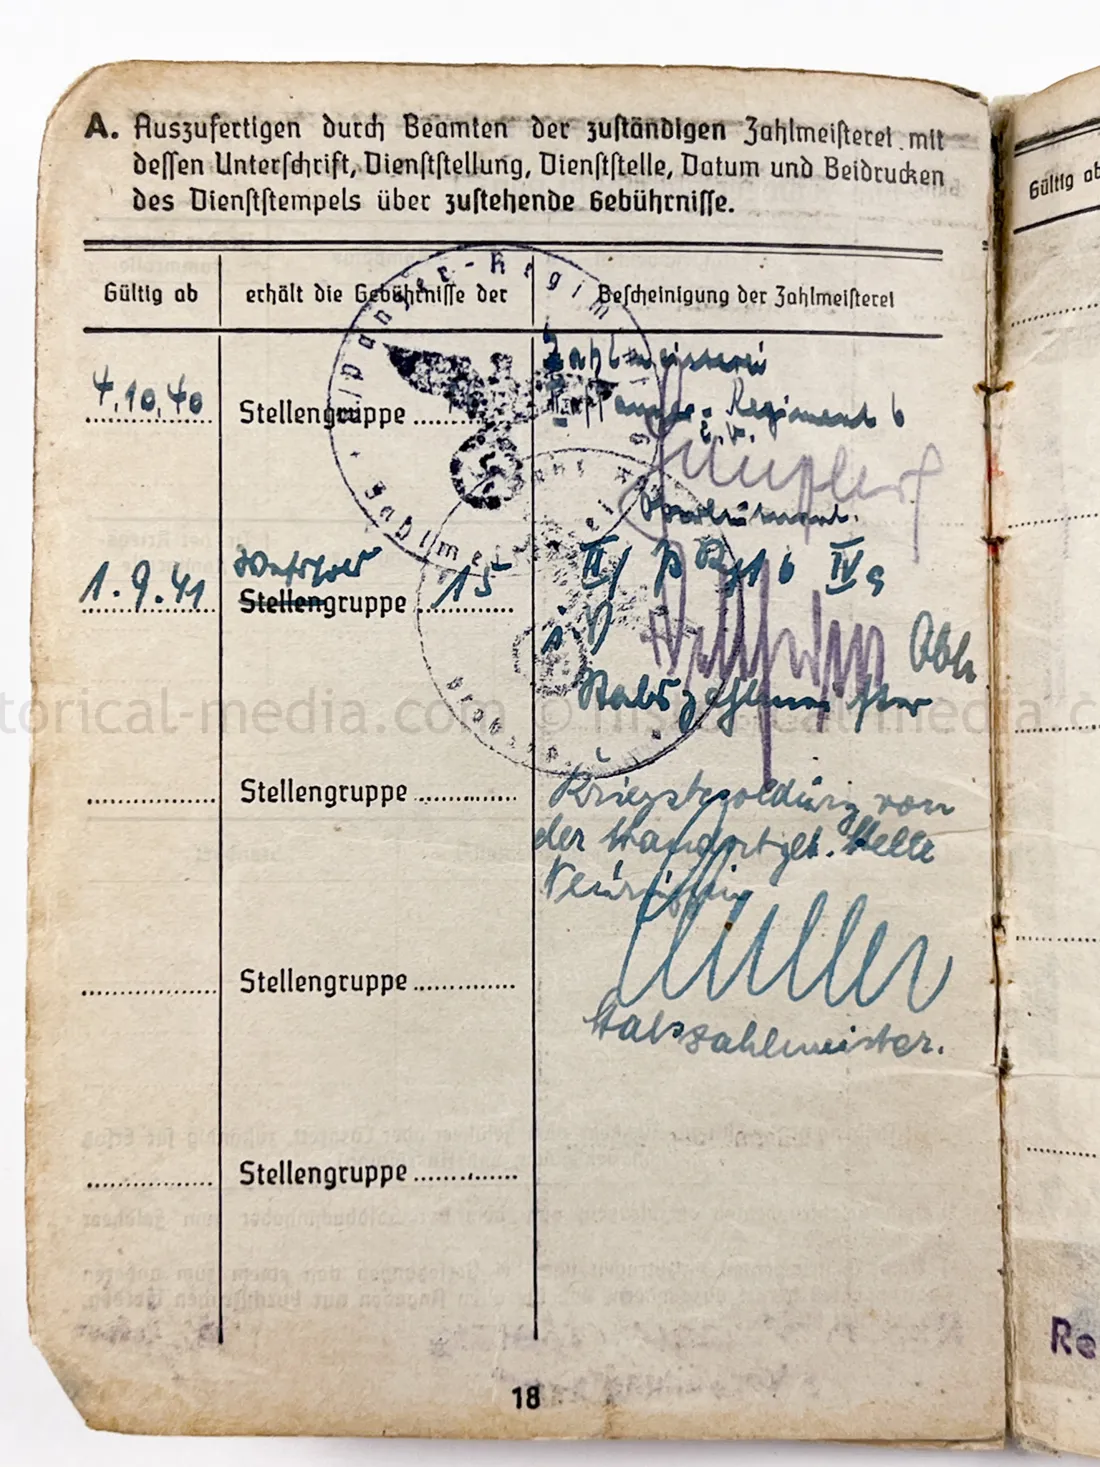 A. Auszufertigen durch Beamten der zuständigen Zahlmeisterei mit
dessen Unterschrift, Dienststellung, Dienststelle, Datum und Beidrucken
des Dienststempels über zustehende Gebührnisse.
Gültig ab
erhält die Gebührnisse der
Bescheinigung der Zahlmeisterei
4.10.40
Stellengruppe
Zahlmeisterei
Panzer-Regiment 6
Oberleutnant.
1.9.41
Wehrsold
Stellengruppe 15
II/ Rgt 6 IVa
Stabszahlmeister
Stellengruppe
Kriegsbesoldung von
der Standortgeb. Stelle
Neuruppin
Müller
Stellengruppe
Stabszahlmeister.
Stellengruppe
18
Panzer-Regim
Zahlmei
Gültig ab
Re
torical-media.com © historical-media.c